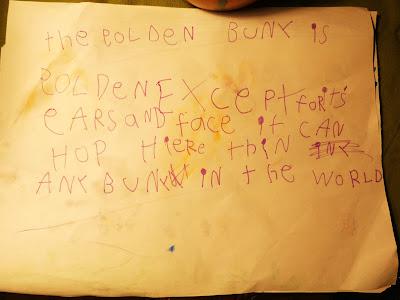 the GOLDEN BUNY is
GOLDEN EXCEPT for it's
EARS and face it CAN
HOP HiERe thin
ANY BUNY in the WORLD